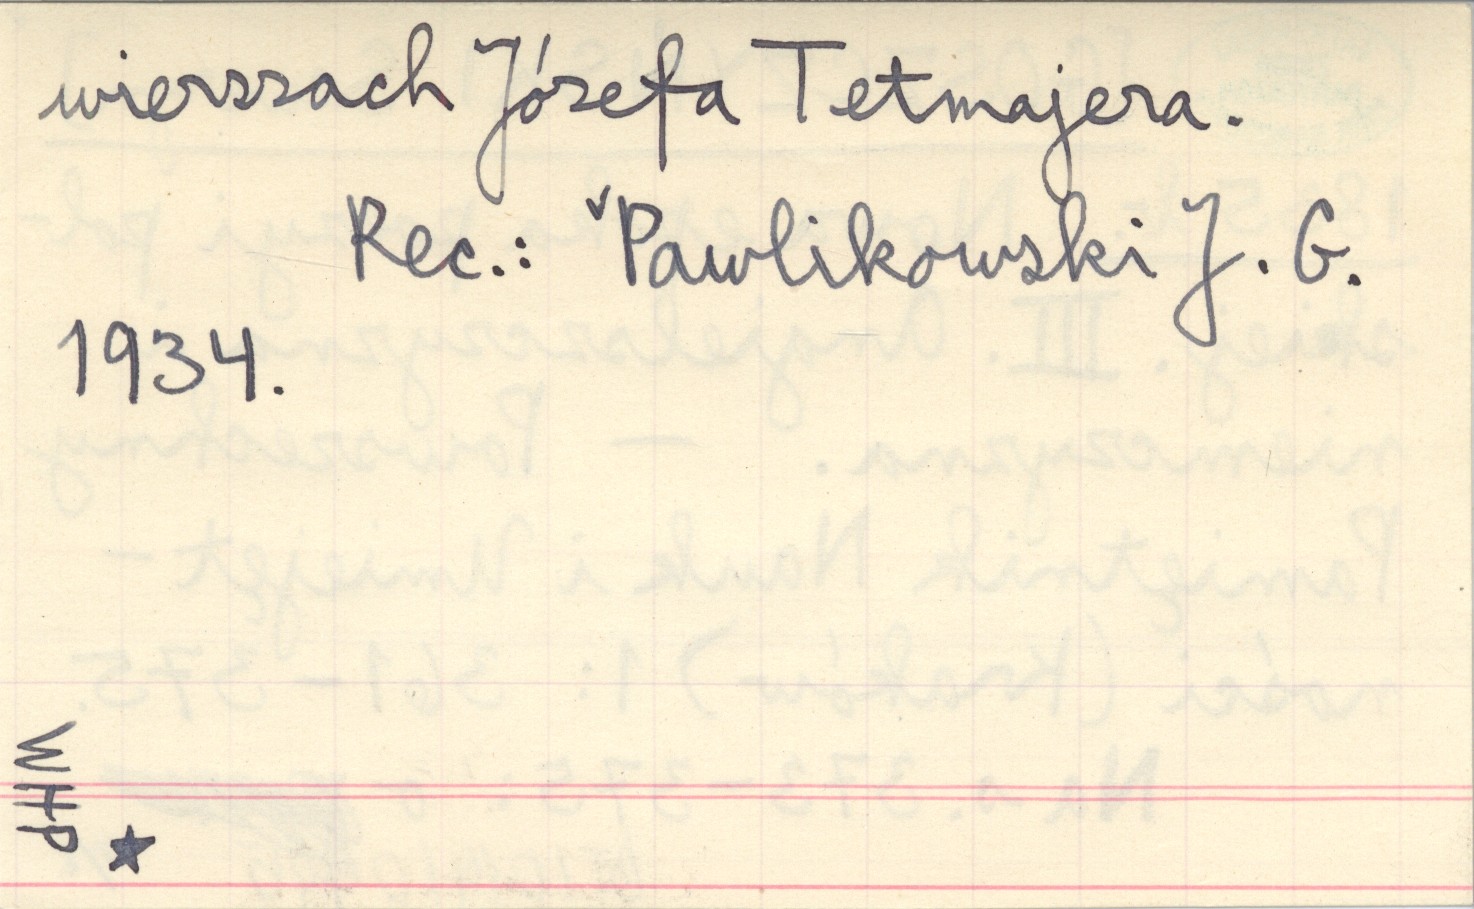 wierszach Józefa Tetmajera.
Rec.: ˇPawlikowski J. G.
1934.
WHP
★